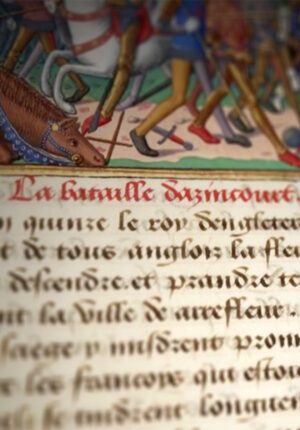 La bataille dazincourt
quinze le roy dengleter
t de tous anglois la fleu
descendre et prandre te
nt la ville de arrefleur.
siege y misdrent prom
e les francoys qui estou
ilz se tindrent longuem